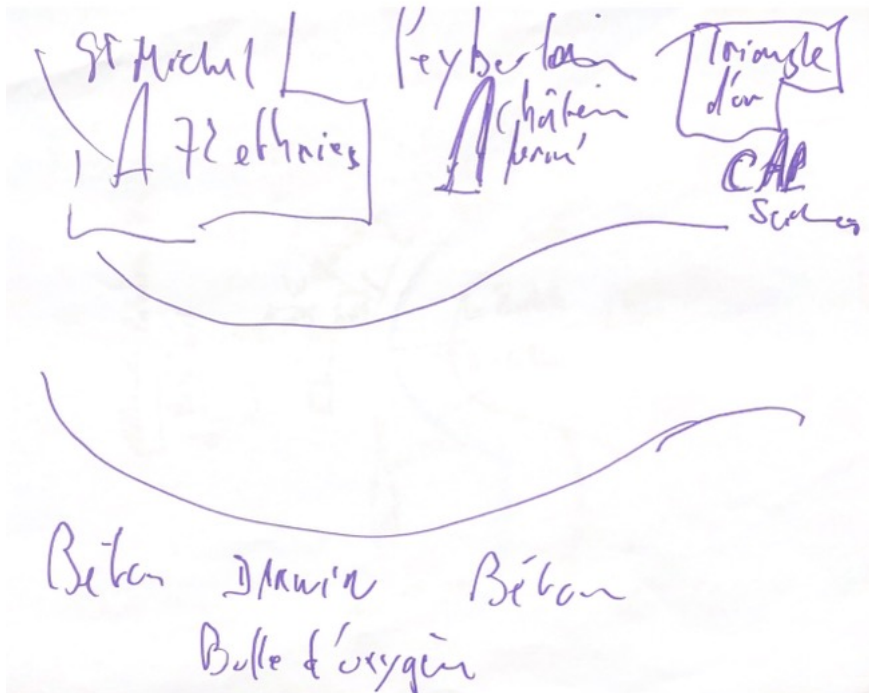 St Michel
72 ethnies
Pey Berlan
Château
fermé
Triangle
d'or
CAP
Sciences
Béton
DARwin
Béton
Bulle d'oxygèn